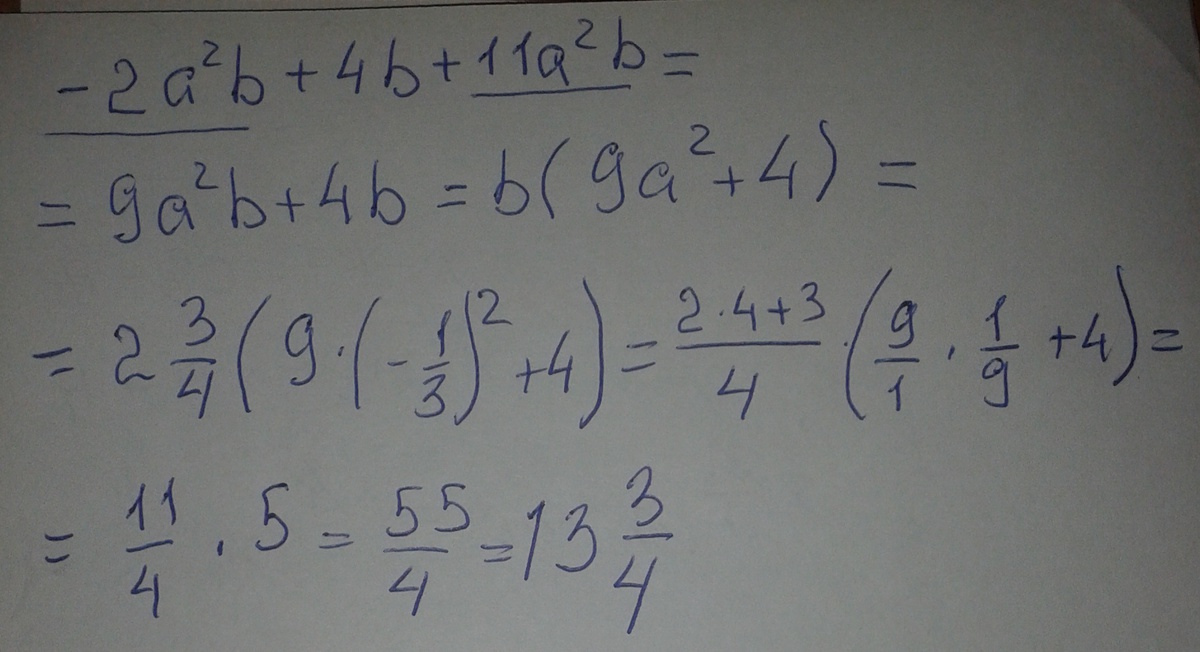 -2a²b+4b+11a²b=
=9a²b+4b=b(9a²+4)=
=2 3/4(9·(-1/3)²+4)=2·4+3/4·(9/1·1/9+4)=
=11/4·5=55/4=13 3/4